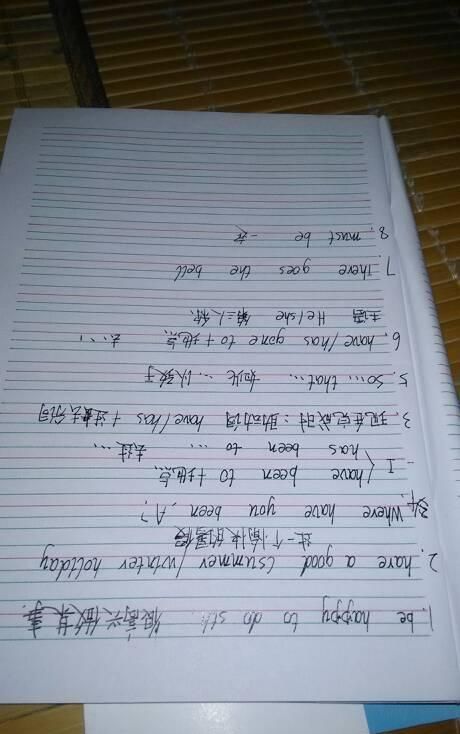 1. be happy to do sth. 很高兴做某事.
2. have a good (summer/winter holiday
过一个愉快的暑假
Where have you been, A?
I have been to + 地点
has been to ... 去过...
3. 现在完成时: 助动词 have/has + 过去分词
5. So... that... 如此...以致于
6. have/has gone to + 地点 去...
主语 He/she 第三人称.
7. There goes the bell
8. must be 一定